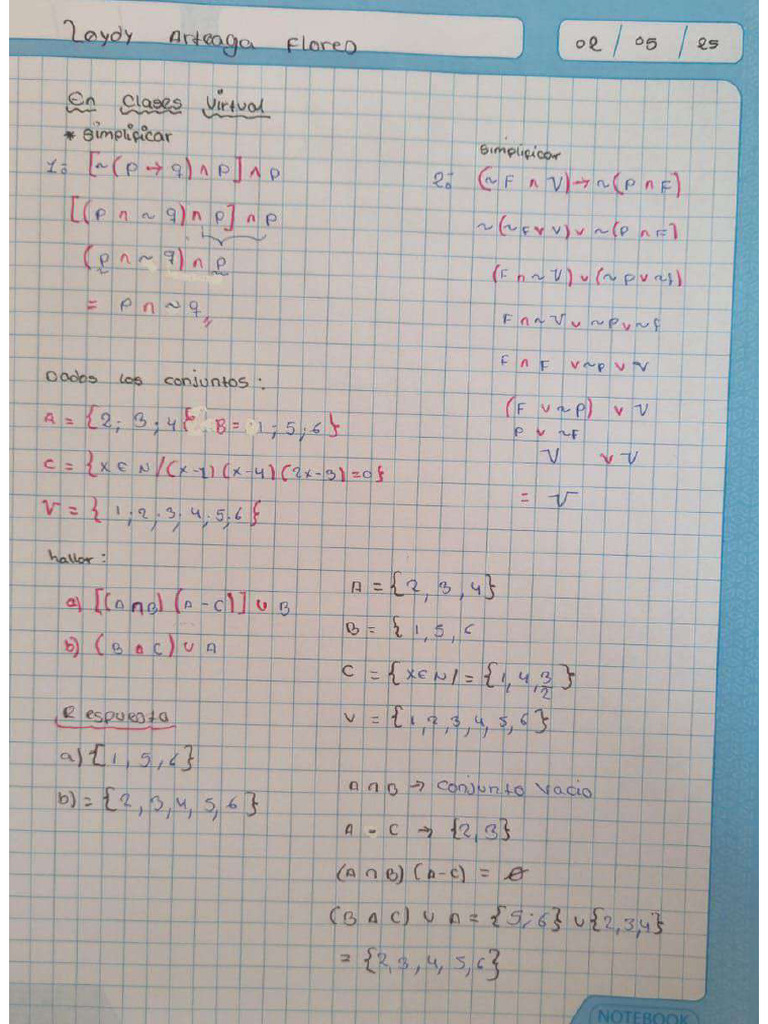 Zaydy Arteaga Flores
02 / 05 / 25
En clases virtual
* simplificar
1º [~(p → q) ∧ p] ∧ p
[(p ∧ ~q) ∧ p] ∧ p
(p ∧ ~q) ∧ p
= p ∧ ~q
simplificar
2º (~F ∧ V) → ~(p ∧ F)
~(~F ∨ V) ∨ ~(p ∧ F)
(F ∧ ~V) ∨ (~p ∨ ~f)
F ∧ ~V ∨ ~p ∨ ~f
F ∧ F ∨ ~p ∨ V
(F ∨ ~p) ∨ V
p ∨ ~F
V ∨ V
= V
Dados los conjuntos:
A = {2; 3; 4} B = 1; 5; 6}
C = {x ∈ N/(x-1)(x-4)(2x-3)=0}
V = {1; 2; 3; 4; 5; 6}
hallar:
a) [(A ∩ B) (A - C)] ∪ B
b) (B ∆ C) ∪ A
Respuesta
a) {1, 5, 6}
b) = {2, 3, 4, 5, 6}
A = {2, 3, 4}
B = {1, 5, 6
C = {x ∈ N/ = {1, 4, 3/2}
U = {1, 2, 3, 4, 5, 6}
A ∩ B → conjunto vacio
A - C → {2, 3}
(A ∩ B) (A - C) = ∅
(B ∆ C) ∪ A = {5; 6} ∪ {2, 3, 4}
= {2, 3, 4, 5, 6}
NOTEBOOK